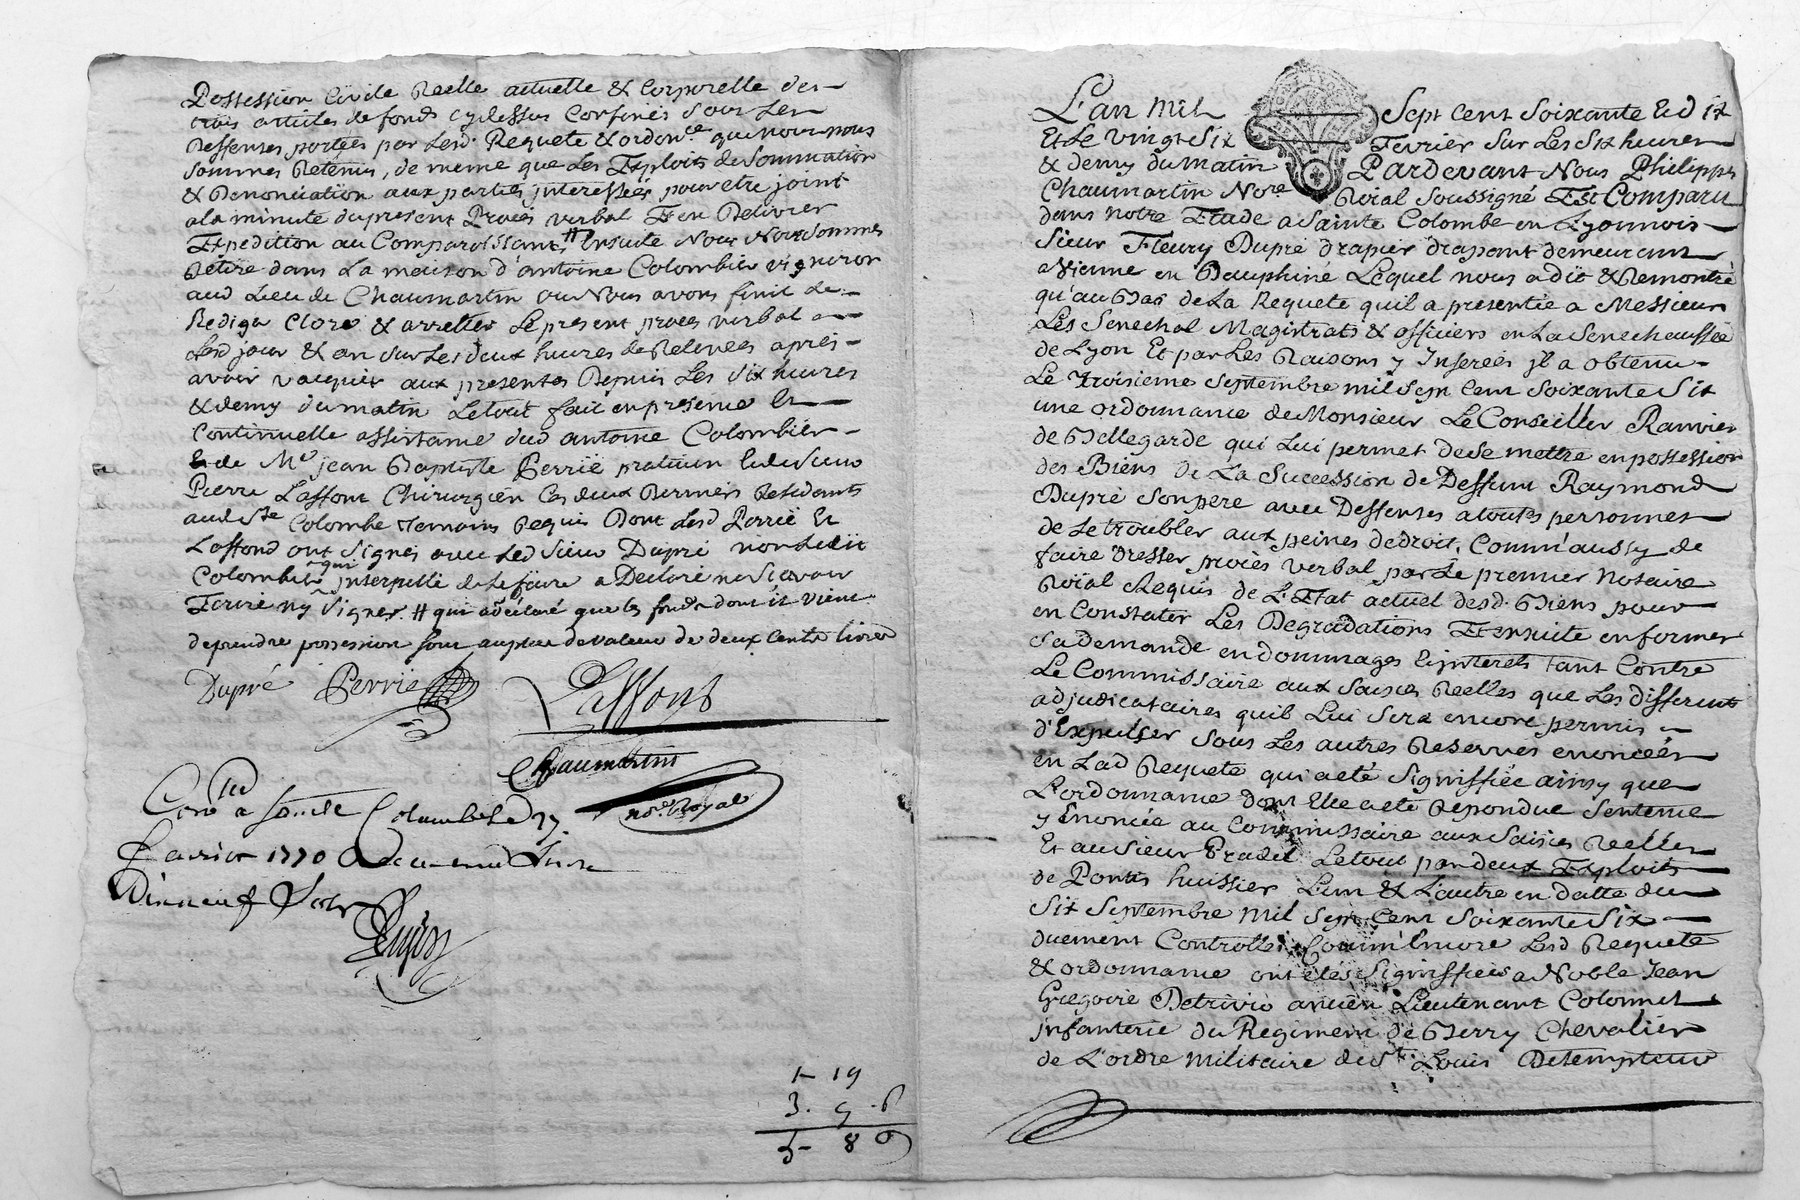 Possession Civile Reelle actuelle & Corporelle des
trois articles de fonds cydessus Confinés sous Les
deffenses portées par Lesd. Requete & ordon.ce que nous nous
sommes Retenus, de meme que Les Exploits de Sommation
& Denonciation aux parties interessées pour etre joint
a la minute du present Procès verbal Et en Delivrer
Expedition au Comparoissant # Ensuite Nous Nous Sommes
Retiré dans La maison d'antoine Colombier vigneron
aud Lieu de Chaumartin ou Nous avons finit de
Rediger Clore & arretter Le present procès verbal
Lesd jour & an sur Les deux heures de Relevées après
avoir vacquer aux presentes Depuis Les Six heures
& demy du matin Letout fait en presence &
Continuelle assistance dud antoine Colombier
& de Me jean Baptiste Perrië praticien Et de Sieur
Pierre Laffont Chirurgien Ces deux Derniers Residants
aud Ste Colombe temoins Requis Dont Lesd Perrië Et
Laffond ont Signés avec Led Sieur Dupré non Ledit
Colombier qui interpellé de Le faire a Declaré ne Sçavoir
Ecrire ny Signer. # qui a déclaré que les fonds dont il vient
de prendre possession sont au plus de valeur de deux cents livres
Dupré Perrie Laffont
Chaumartin
no.re Royal
Con.lé a Sainte Colombe le 27
fevrier 1770 Recu une Livre
Dixneuf Sols
1 - 19
3 . 9 . 6
5 - 8 6
L'an Mil Sept Cent Soixante & dix
Et Le Vingt Six Fevrier Sur Les Six heures
& demy du matin Pardevant Nous Philippe
Chaumartin No.re Roial Soussigné Est Comparu
dans notre Etude a Sainte Colombe en Lyonnois
Sieur Fleury Dupré drapier drapant demeurant
a Vienne en Dauphiné Lequel nous a dit & Remontré
qu'au Bas de La Requete quil a presentée a Messieurs
Les Senechal Magistrats & officiers en La Senechaussée
de Lyon Et par Les Raisons y Inserées jl a obtenu
Le Troisieme Septembre mil Sept Cent Soixante Six
une ordonnance de Monsieur Le Conseiller Ranvier
de Bellegarde qui Lui permet de se mettre en possession
des Biens de La Succession de Deffunt Raymond
Dupré Son pere avec Deffenses a toutes personnes
de Le troubler aux peines de droit, Comm'aussy de
faire Dresser procès verbal par Le premier Notaire
Roial Requis de L'Etat actuel desd. Biens pour
en Constater Les Degradations Et ensuite en former
Sa demande en dommages & interets tant Contre
Le Commissaire aux Saisies Reelles que Les differents
adjudicataires quil Lui Sera encore permis
d'Expulser Sous Les autres Reserves enoncées
en Lad Requete qui a eté Signiffiée ainsy que
L'ordonnance dont Elle a eté Repondue Sentence
y Enoncée au Commissaire aux Saisies Reelles
Et au Sieur Pradel Letout par deux Exploits
de Pontis huissier L'un & L'autre en datte du
Six Septembre Mil Sept Cent Soixante Six
duement Controllés, Comm'Encore Lesd Requete
& ordonnance ont étés Signiffiées a Noble Jean
Gregoire Detrivio ancien Lieutenant Colonnel
jnfanterie du Regiment de Berry Chevalier
de L'ordre Militaire de St. Louis Detempteur